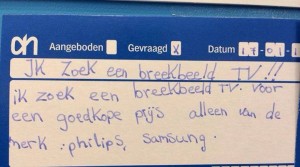 ah Aangeboden Gevraagd X Datum 17-01-1
JK ZOEK een breekbeeld TV!!
ik zoek een breekbeeld TV. voor
een goedkope prijs alleen van de
merk : philips, samsung.